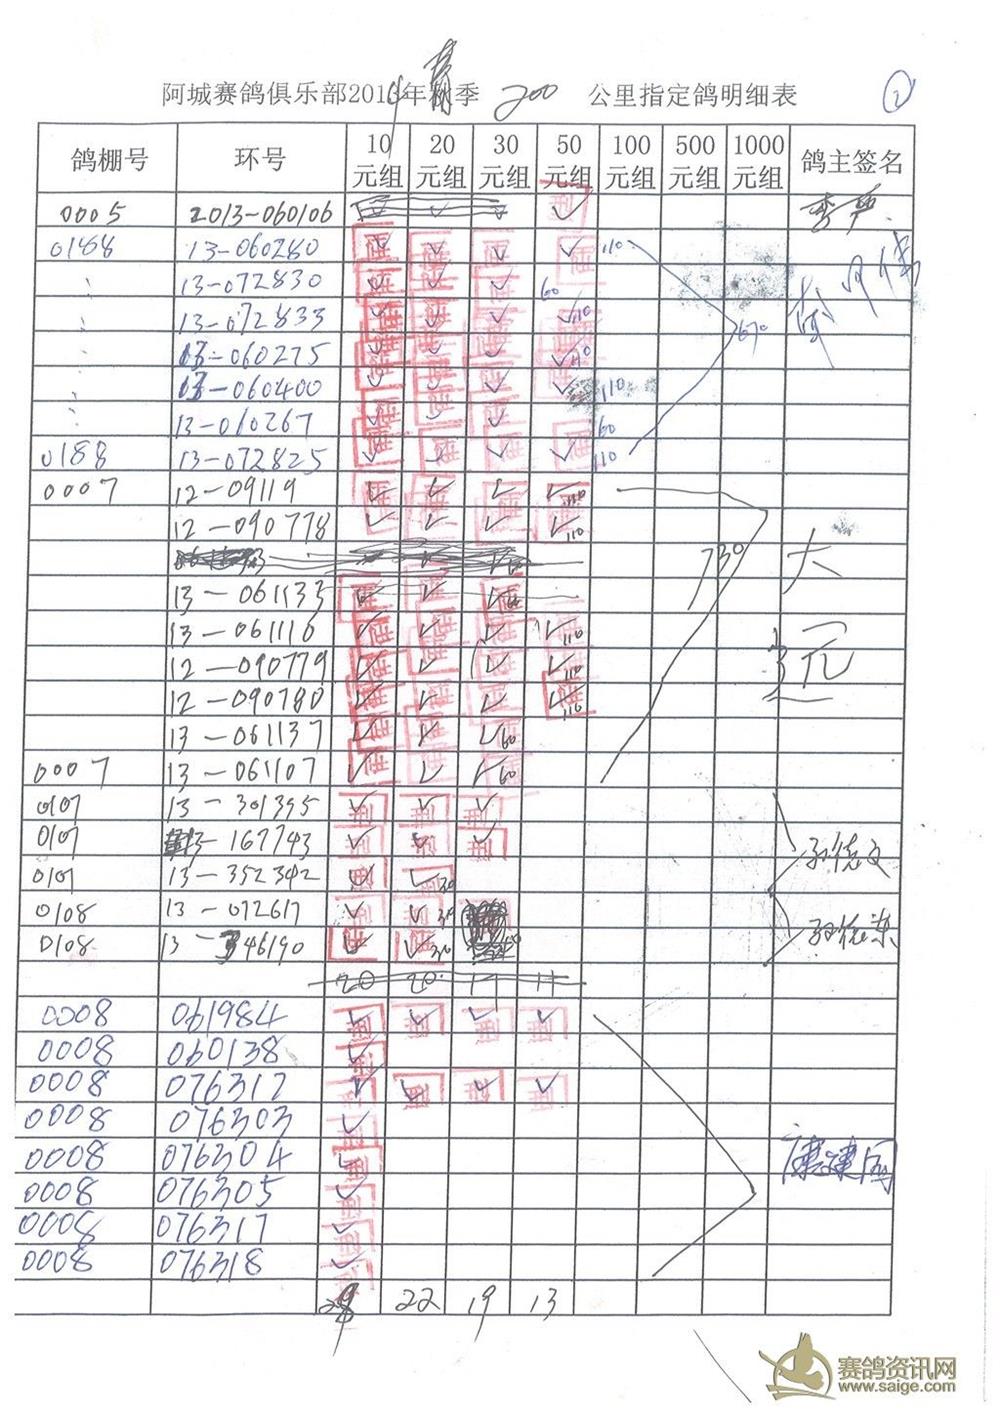 阿城赛鸽俱乐部2014年春季 200 公里指定鸽明细表 2
鸽棚号 环号 10元组 20元组 30元组 50元组 100元组 500元组 1000元组 鸽主签名
0005 2013-060106 ✓
0188 13-060280 ✓ ✓ ✓ ✓ 110
13-072830 ✓ ✓ ✓ 60
13-072833 ✓ ✓ ✓ ✓ 110 670
13-060275 ✓ ✓ ✓ ✓ 110
13-060400 ✓ ✓ ✓ ✓ 110
13-060267 ✓ ✓ ✓ 60
0188 13-072825 ✓ ✓ ✓ ✓ 110
0007 12-09119 ✓ ✓ ✓ ✓ 110
12-090778 ✓ ✓ ✓ ✓ 110
730 大
13-061133 ✓ ✓ ✓ 60
13-061110 ✓ ✓ ✓ ✓ 110
12-090779 ✓ ✓ ✓ ✓ 110
12-090780 ✓ ✓ ✓ ✓ 110
13-061137 ✓ ✓ ✓ 60
0007 13-061107 ✓ ✓ ✓ 60
0107 13-301395 ✓ ✓ ✓
0107 13-167743 ✓ ✓ ✓
0107 13-352342 ✓ ✓ 30 孙德文
0108 13-072617 ✓ ✓ 30
0108 13-346190 ✓ ✓ 30
20 20 17 11
0008 061984 ✓ ✓ ✓ ✓
0008 060138 ✓
0008 076312 ✓ ✓ ✓ ✓
0008 076303 ✓
0008 076304 ✓ 康建国
0008 076305 ✓
0008 076317 ✓
0008 076318 ✓
28 22 19 13
赛鸽资讯网
www.saige.com